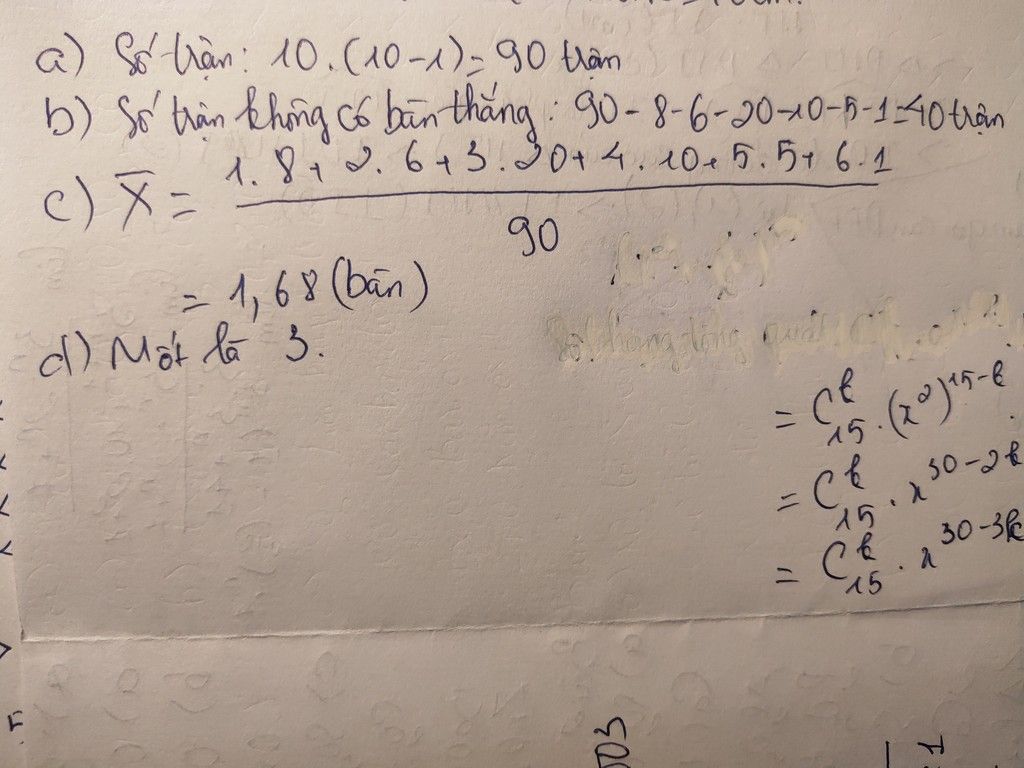 a) Số trận: 10.(10-1)=90 trận
b) Số trận không có bàn thắng: 90-8-6-20-10-5-1=40 trận
c) X̄ = (1.8+2.6+3.20+4.10+5.5+6.1)/90
= 1,68 (bàn)
d) Mốt là 3.
= C₁₅ᵏ.(x²)¹⁵⁻ᵏ
= C₁₅ᵏ.x³⁰⁻²ᵏ
= C₁₅ᵏ.x³⁰⁻³ᵏ